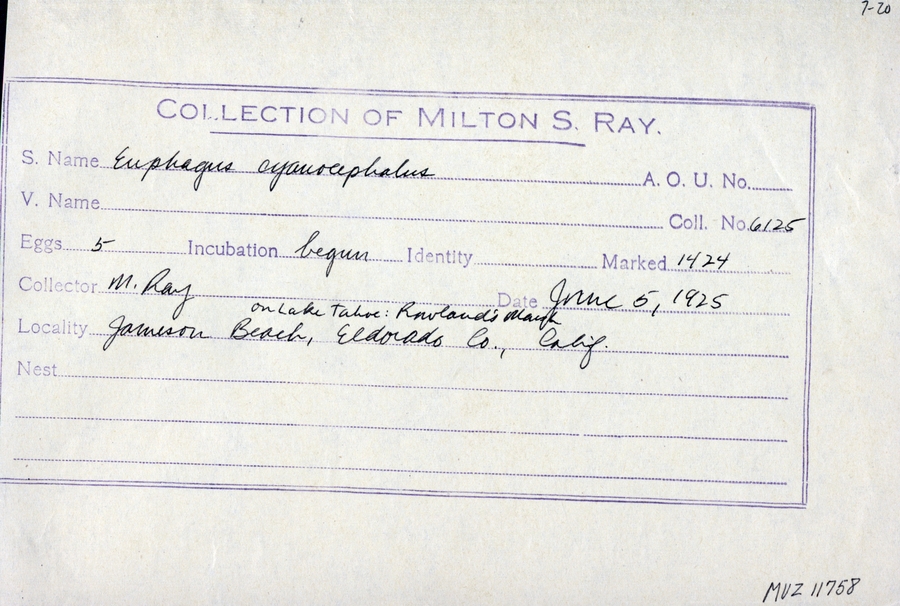 7-20
COLLECTION OF MILTON S. RAY.
S. Name Euphagus cyanocephalus A. O. U. No.
V. Name Coll. No. 6125
Eggs 5 Incubation begun Identity Marked 1424
Collector M. Ray Date June 5, 1925
on Lake Tahoe: Rowland's Marsh
Locality Jameson Beach, Eldorado Co., Calif.
Nest
MVZ 11758